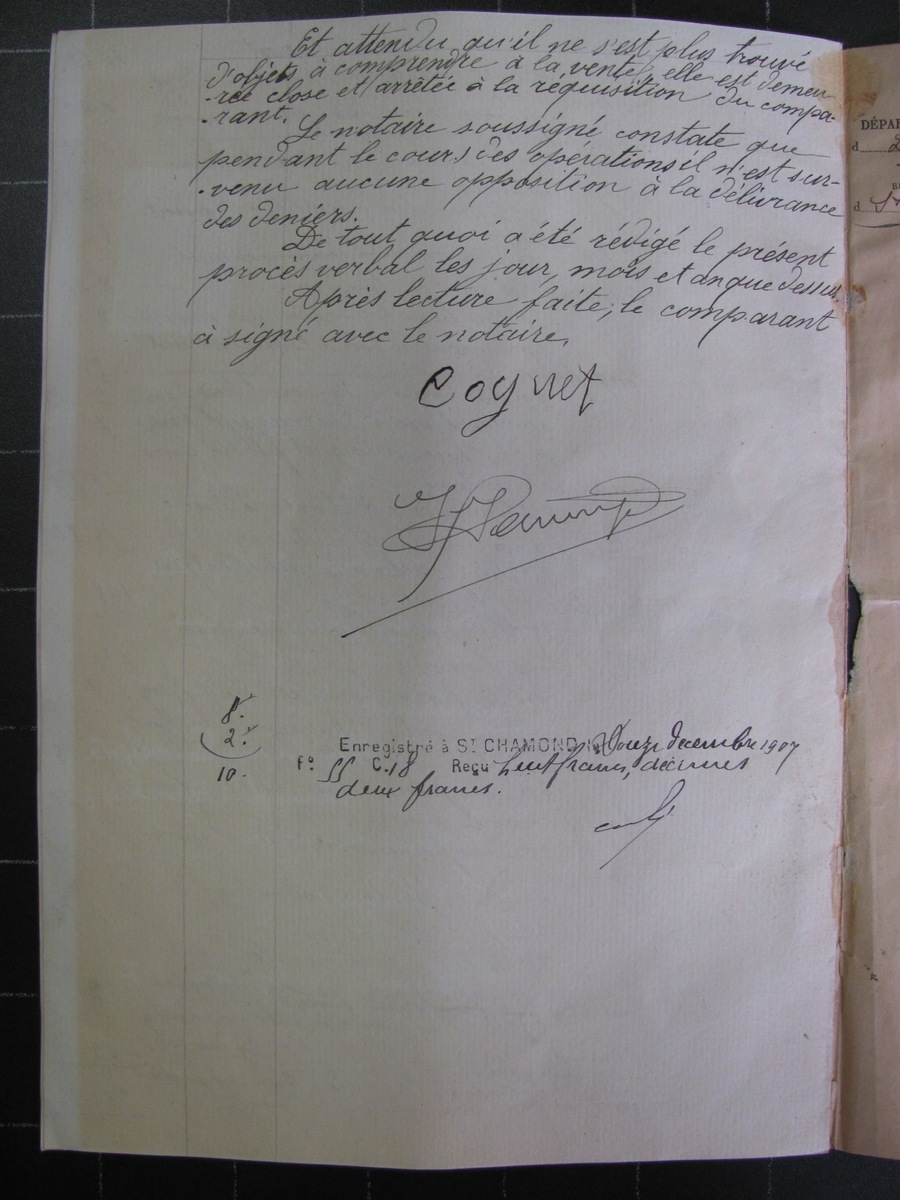 Et attendu qu'il ne s'est plus trouvé
d'objets à comprendre à la vente, elle est demeu-
-rée close et arrêtée à la réquisition du compa-
-rant.
Le notaire soussigné constate que
pendant le cours des opérations il n'est sur-
-venu aucune opposition à la délivrance
des deniers.
De tout quoi a été rédigé le présent
procès verbal les jour, mois et an que dessus.
Après lecture faite, le comparant
à signé avec le notaire.
Coynet
8.
2.
10.
Enregistré à St CHAMOND, le Douze décembre 1907
f° 55 C. 18 Reçu huit francs, décimes
deux francs.
DÉPAR
d
d